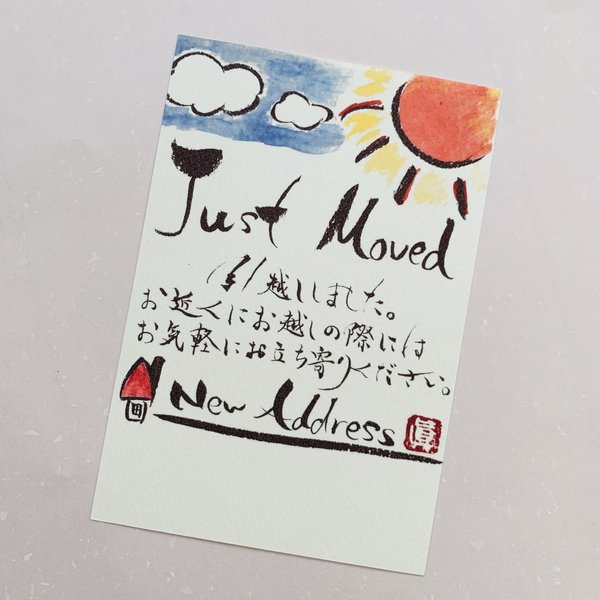 Just Moved
引越ししました。
お近くにお越しの際には
お気軽にお立ち寄りください。
New Address